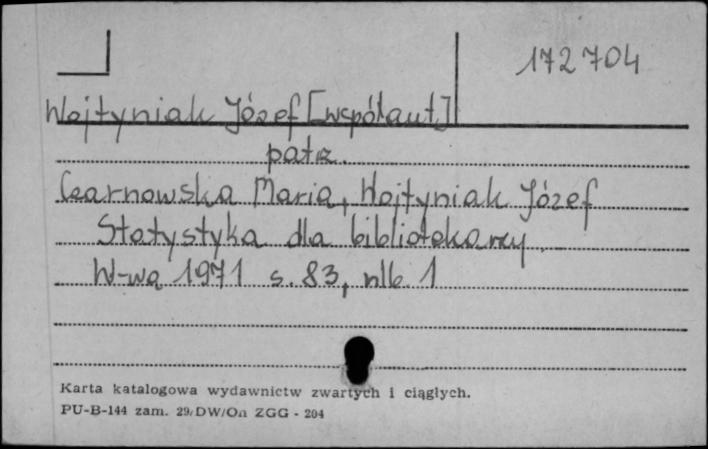 172704
Wojtyniak Józef [współaut]
patrz.
Czarnowska Maria, Wojtyniak Józef
Statystyka dla bibliotekarzy.
W-wa 1971 s. 83, nlb. 1
Karta katalogowa wydawnictw zwartych i ciągłych.
PU-B-144 zam. 29/DW/On ZGG - 204